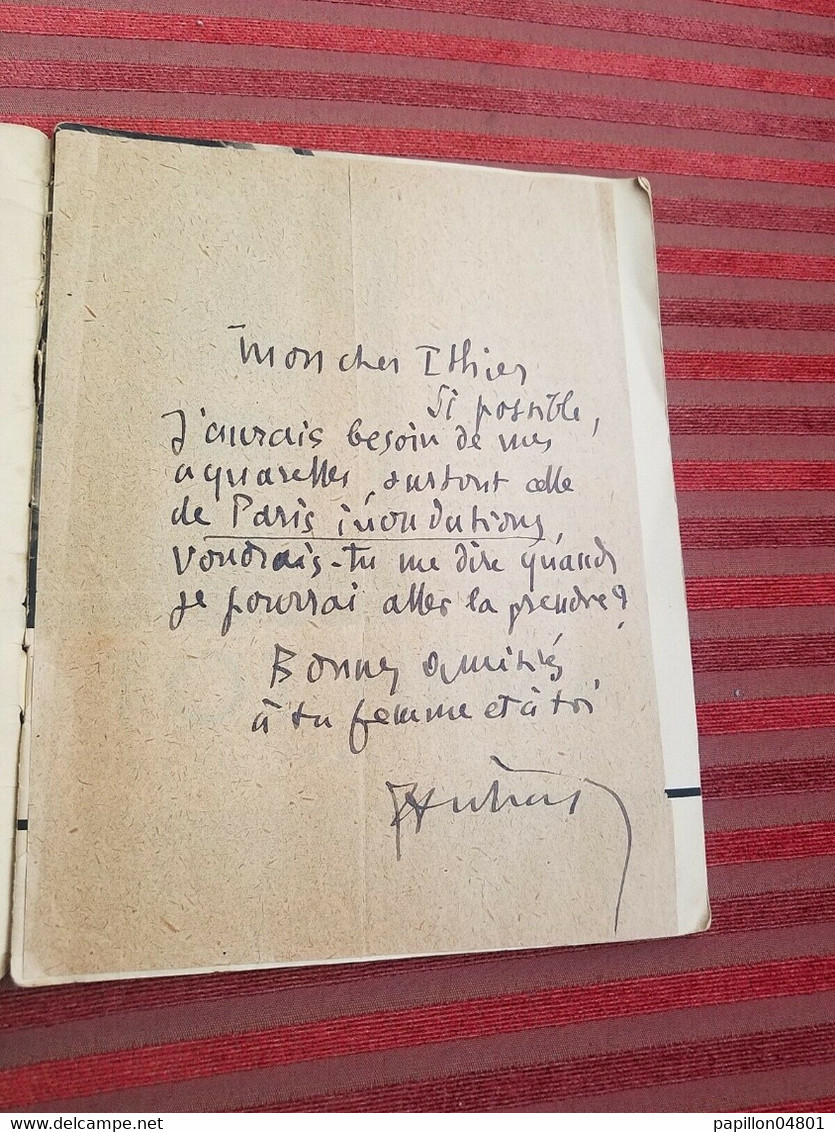 Mon cher Ithier
Si possible,
J'aurais besoin de mes
aquarelles, surtout celle
de Paris inondations,
Voudrais-tu me dire quand
je pourrai aller la prendre ?
Bonnes amitiés
à ta femme et à toi
papillon04801
www.delcampe.net